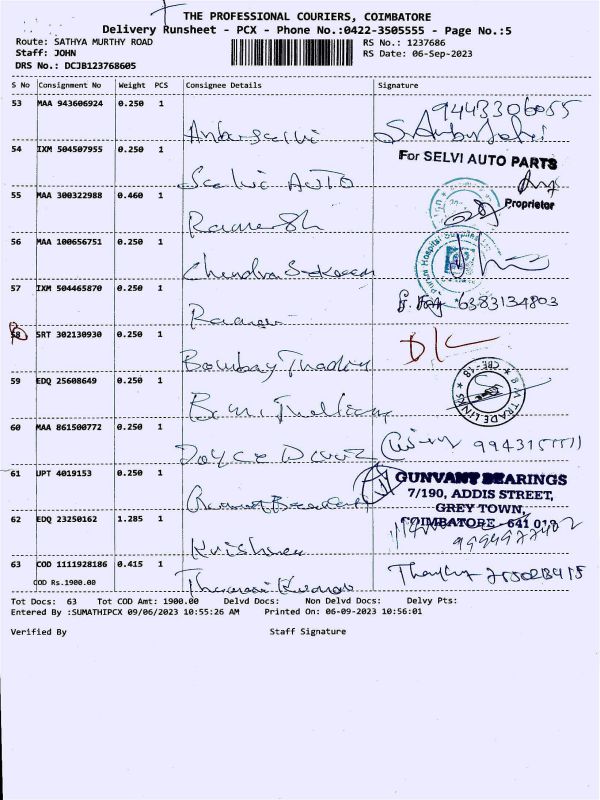 THE PROFESSIONAL COURIERS, COIMBATORE
Delivery Runsheet - PCX - Phone No.:0422-3505555 - Page No.:5
Route: SATHYA MURTHY ROAD RS No.: 1237686
Staff: JOHN RS Date: 06-Sep-2023
DRS No.: DCJB123768605
S No Consignment No Weight PCS Consignee Details Signature
53 MAA 943606924 0.250 1
9443306055
54 IXM 504507955 0.250 1
For SELVI AUTO PARTS
Selvi AUTO
Proprietor
55 MAA 300322988 0.460 1
Ramesh
56 MAA 100656751 0.250 1
57 IXM 504465870 0.250 1
6383134803
58 SRT 302130930 0.250 1
Bombay Trading
59 EDQ 25608649 0.250 1
60 MAA 861500772 0.250 1
61 UPT 4019153 0.250 1
GUNVANT BEARINGS
7/190, ADDIS STREET,
GREY TOWN,
COIMBATORE - 641 018
62 EDQ 23250162 1.285 1
Krishna
63 COD 1111928186 0.415 1
COD Rs.1900.00
Tot Docs: 63 Tot COD Amt: 1900.00 Delvd Docs: Non Delvd Docs: Delvy Pts:
Entered By :SUMATHIPCX 09/06/2023 10:55:26 AM Printed On: 06-09-2023 10:56:01
Verified By Staff Signature